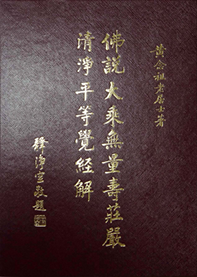 黃念祖老居士著
佛說大乘無量壽莊嚴
清淨平等覺經解
釋淨空敬題